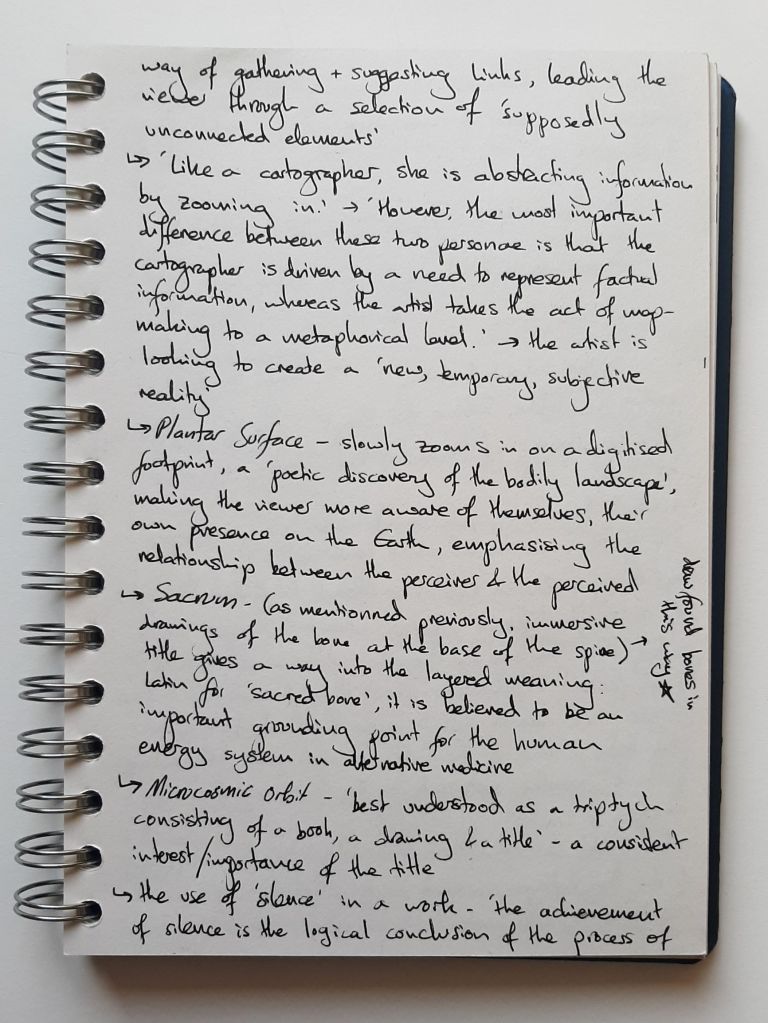 way of gathering + suggesting links, leading the
viewer through a selection of 'supposedly
unconnected elements'
↳ 'Like a cartographer, she is abstracting information
by zooming in.' → 'However, the most important
difference between these two personae is that the
cartographer is driven by a need to represent factual
information, whereas the artist takes the act of map-
making to a metaphorical level.' → the artist is
looking to create a 'new, temporary, subjective
reality'
↳ Plantar Surface - slowly zooms in on a digitised
footprint, a 'poetic discovery of the bodily landscape',
making the viewer more aware of themselves, their
own presence on the Earth, emphasising the
relationship between the perceiver & the perceived
↳ Sacrum - (as mentionned previously, immersive
drawings of the bone at the base of the spine) →
title gives a way into the layered meaning:
Latin for 'sacred bone', it is believed to be an
important grounding point for the human
energy system in alternative medicine
draw found bones in
this way ★
↳ Microcosmic Orbit - 'best understood as a triptych
consisting of a book, a drawing & a title' - a consistent
interest/importance of the title
↳ the use of 'silence' in a work - 'the achievement
of silence is the logical conclusion of the process of